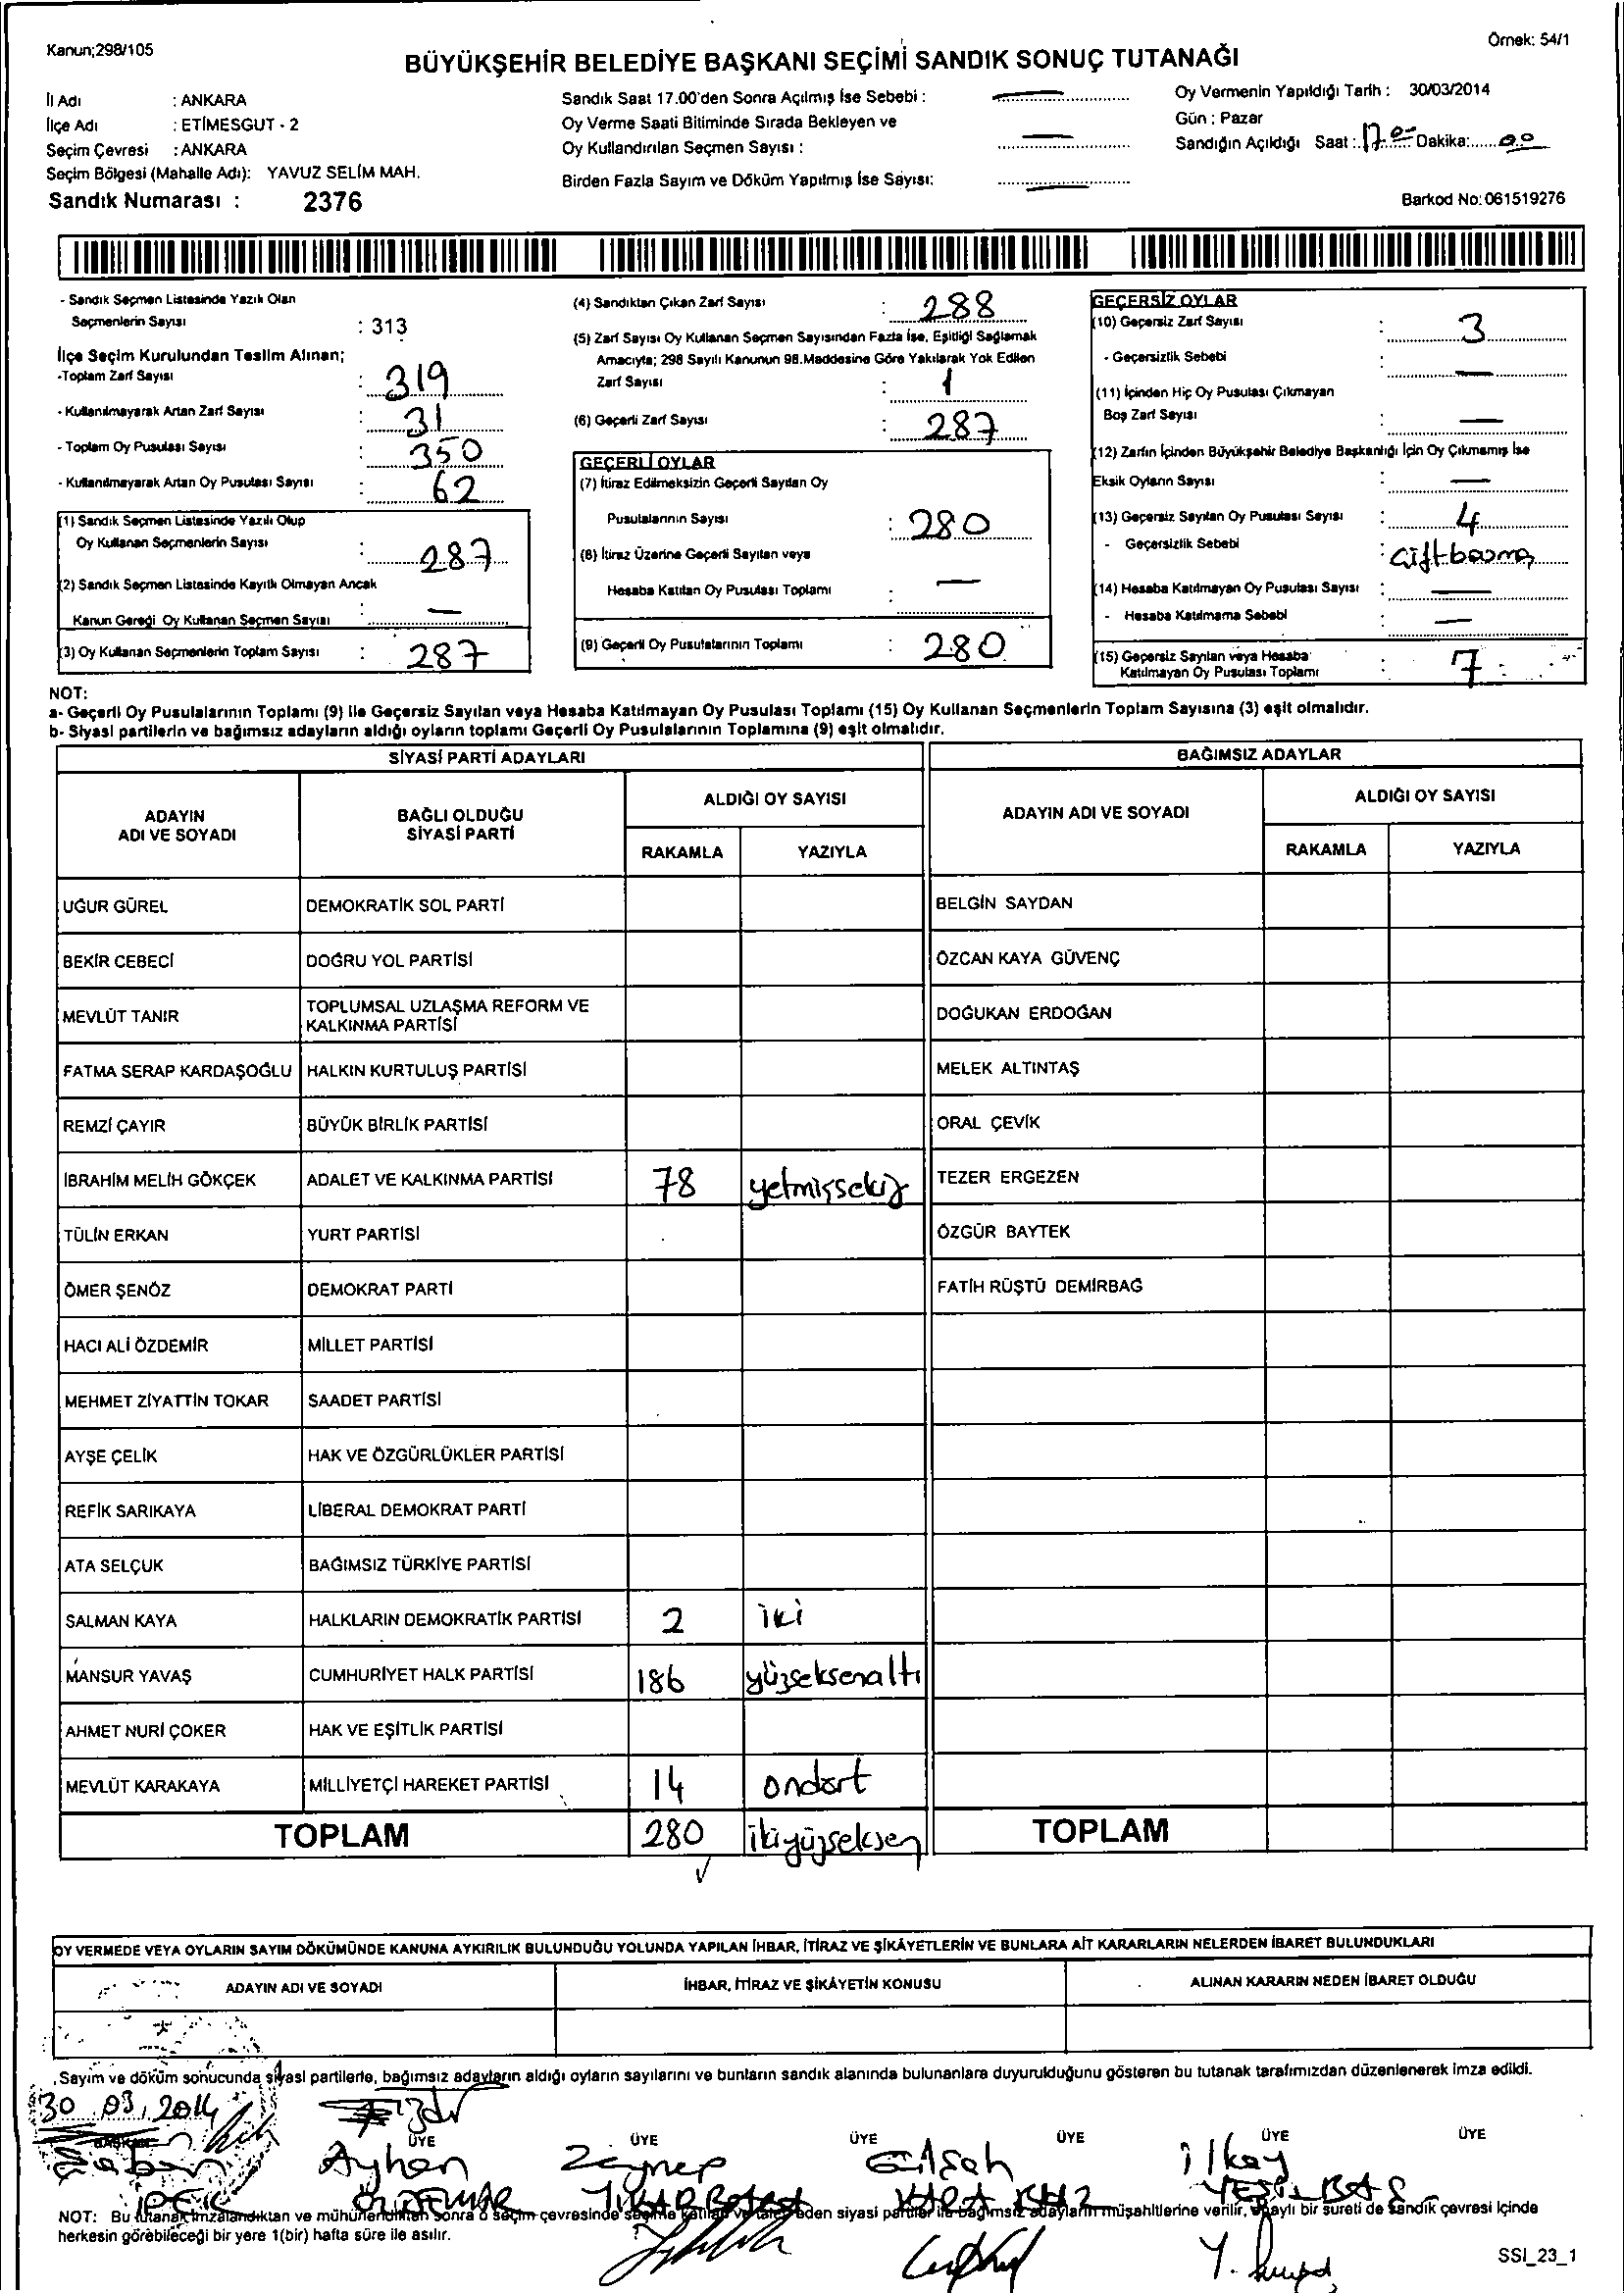 Kanun;298/105
Örnek: 54/1
BÜYÜKŞEHİR BELEDİYE BAŞKANI SEÇİMİ SANDIK SONUÇ TUTANAĞI
İl Adı : ANKARA
İlçe Adı : ETİMESGUT - 2
Seçim Çevresi : ANKARA
Seçim Bölgesi (Mahalle Adı): YAVUZ SELİM MAH.
Sandık Numarası : 2376
Sandık Saat 17.00'den Sonra Açılmış İse Sebebi : —
Oy Verme Saati Bitiminde Sırada Bekleyen ve
Oy Kullandırılan Seçmen Sayısı : —
Birden Fazla Sayım ve Döküm Yapılmış İse Sayısı: —
Oy Vermenin Yapıldığı Tarih : 30/03/2014
Gün : Pazar
Sandığın Açıldığı Saat : 17.00 Dakika: 00
Barkod No: 061519276
- Sandık Seçmen Listesinde Yazılı Olan
Seçmenlerin Sayısı : 313
İlçe Seçim Kurulundan Teslim Alınan;
-Toplam Zarf Sayısı : 319
- Kullanılmayarak Artan Zarf Sayısı : 31
- Toplam Oy Pusulası Sayısı : 350
- Kullanılmayarak Artan Oy Pusulası Sayısı : 62
(1) Sandık Seçmen Listesinde Yazılı Olup
Oy Kullanan Seçmenlerin Sayısı : 287
(2) Sandık Seçmen Listesinde Kayıtlı Olmayan Ancak
Kanun Gereği Oy Kullanan Seçmen Sayısı : —
(3) Oy Kullanan Seçmenlerin Toplam Sayısı : 287
(4) Sandıktan Çıkan Zarf Sayısı : 288
(5) Zarf Sayısı Oy Kullanan Seçmen Sayısından Fazla İse, Eşitliği Sağlamak
Amacıyla; 298 Sayılı Kanunun 98.Maddesine Göre Yakılarak Yok Edilen
Zarf Sayısı : 1
(6) Geçerli Zarf Sayısı : 287
GEÇERLİ OYLAR
(7) İtiraz Edilmeksizin Geçerli Sayılan Oy
Pusulalarının Sayısı : 280
(8) İtiraz Üzerine Geçerli Sayılan veya
Hesaba Katılan Oy Pusulası Toplamı : —
(9) Geçerli Oy Pusulalarının Toplamı : 280
GEÇERSİZ OYLAR
(10) Geçersiz Zarf Sayısı : 3
- Geçersizlik Sebebi : —
(11) İçinden Hiç Oy Pusulası Çıkmayan
Boş Zarf Sayısı : —
(12) Zarfın İçinden Büyükşehir Belediye Başkanlığı İçin Oy Çıkmamış İse
Eksik Oyların Sayısı : —
(13) Geçersiz Sayılan Oy Pusulası Sayısı : 4
- Geçersizlik Sebebi : çift basma
(14) Hesaba Katılmayan Oy Pusulası Sayısı : —
- Hesaba Katılmama Sebebi : —
(15) Geçersiz Sayılan veya Hesaba
Katılmayan Oy Pusulası Toplamı : 7
NOT:
a- Geçerli Oy Pusulalarının Toplamı (9) ile Geçersiz Sayılan veya Hesaba Katılmayan Oy Pusulası Toplamı (15) Oy Kullanan Seçmenlerin Toplam Sayısına (3) eşit olmalıdır.
b- Siyasi partilerin ve bağımsız adayların aldığı oyların toplamı Geçerli Oy Pusulalarının Toplamına (9) eşit olmalıdır.
SİYASİ PARTİ ADAYLARI
BAĞIMSIZ ADAYLAR
ADAYIN ADI VE SOYADI
BAĞLI OLDUĞU SİYASİ PARTİ
ALDIĞI OY SAYISI
RAKAMLA YAZIYLA
ADAYIN ADI VE SOYADI
ALDIĞI OY SAYISI
RAKAMLA YAZIYLA
UĞUR GÜREL DEMOKRATİK SOL PARTİ BELGİN SAYDAN
BEKİR CEBECİ DOĞRU YOL PARTİSİ ÖZCAN KAYA GÜVENÇ
MEVLÜT TANIR TOPLUMSAL UZLAŞMA REFORM VE KALKINMA PARTİSİ DOĞUKAN ERDOĞAN
FATMA SERAP KARDAŞOĞLU HALKIN KURTULUŞ PARTİSİ MELEK ALTINTAŞ
REMZİ ÇAYIR BÜYÜK BİRLİK PARTİSİ ORAL ÇEVİK
İBRAHİM MELİH GÖKÇEK ADALET VE KALKINMA PARTİSİ 78 yetmişsekiz TEZER ERGEZEN
TÜLİN ERKAN YURT PARTİSİ ÖZGÜR BAYTEK
ÖMER ŞENÖZ DEMOKRAT PARTİ FATİH RÜŞTÜ DEMİRBAĞ
HACI ALİ ÖZDEMİR MİLLET PARTİSİ
MEHMET ZİYATTİN TOKAR SAADET PARTİSİ
AYŞE ÇELİK HAK VE ÖZGÜRLÜKLER PARTİSİ
REFİK SARIKAYA LİBERAL DEMOKRAT PARTİ
ATA SELÇUK BAĞIMSIZ TÜRKİYE PARTİSİ
SALMAN KAYA HALKLARIN DEMOKRATİK PARTİSİ 2 iki
MANSUR YAVAŞ CUMHURİYET HALK PARTİSİ 186 yüzseksenaltı
AHMET NURİ ÇOKER HAK VE EŞİTLİK PARTİSİ
MEVLÜT KARAKAYA MİLLİYETÇİ HAREKET PARTİSİ 14 ondört
TOPLAM 280 ikiyüzseksen TOPLAM
OY VERMEDE VEYA OYLARIN SAYIM DÖKÜMÜNDE KANUNA AYKIRILIK BULUNDUĞU YOLUNDA YAPILAN İHBAR, İTİRAZ VE ŞİKÂYETLERİN VE BUNLARA AİT KARARLARIN NELERDEN İBARET BULUNDUKLARI
ADAYIN ADI VE SOYADI İHBAR, İTİRAZ VE ŞİKÂYETİN KONUSU ALINAN KARARIN NEDEN İBARET OLDUĞU
Sayım ve döküm sonucunda siyasi partilerle, bağımsız adayların aldığı oyların sayılarını ve bunların sandık alanında bulunanlara duyurulduğunu gösteren bu tutanak tarafımızdan düzenlenerek imza edildi.
30.03.2014
BAŞKAN ÜYE ÜYE ÜYE ÜYE ÜYE ÜYE
Şaban Ayhan Zeynep Gülşah İlkay
İPEK ÖZDEMİR KARA
NOT: Bu tutanak imzalandıktan ve mühürlendikten sonra o seçim çevresinde seçime katılan ve talep eden siyasi partiler ile bağımsız adayların müşahitlerine verilir, onaylı bir sureti de sandık çevresi içinde
herkesin görebileceği bir yere 1(bir) hafta süre ile asılır.
SSI_23_1